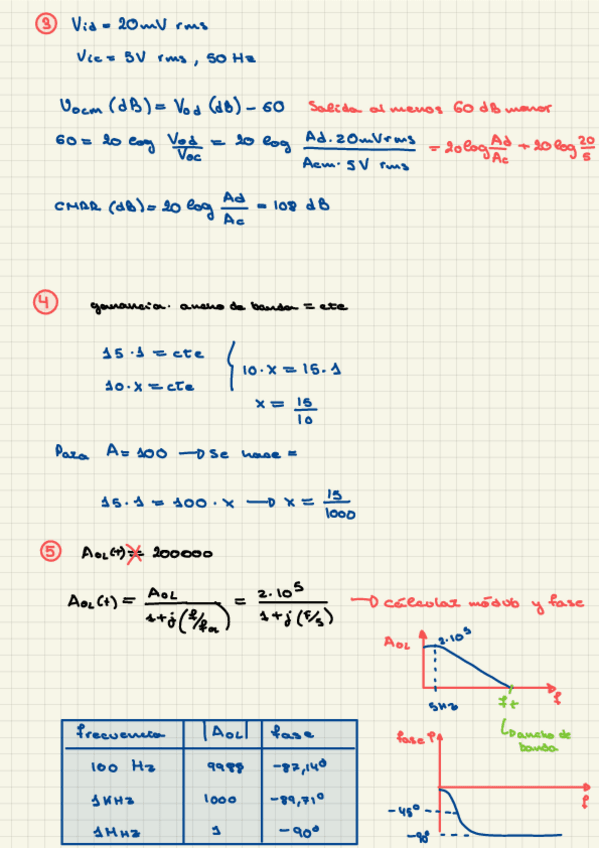 3 Vid = 20mV rms
Vic = 5V rms, 50 Hz
Vocm (dB) = Vod (dB) - 60 Salida al menos 60 dB menor
60 = 20 log Vod/Voc = 20 log Ad · 20mVrms / Acm · 5V rms = 20log Ad/Ac + 20log 20/5
CMRR (dB) = 20 log Ad/Ac = 108 dB
4 ganancia · ancho de banda = cte
15 · 1 = cte
10 · x = cte
10 · x = 15 · 1
x = 15/10
Para A = 100 → se hace =
15 · 1 = 100 · x → x = 15/1000
5 AOL(t) = 200000
AOL(t) = AOL / 1+j(f/fol) = 2·10⁵ / 1+j(F/5) → cálcular módulo y fase
AOL 2·10⁵
5Hz ft f
ancho de banda
frecuencia |AOL| fase
100 Hz 9988 -87,14º
1KHz 1000 -89,71º
1MHz 1 -90º
fase
f
-45º
-90º